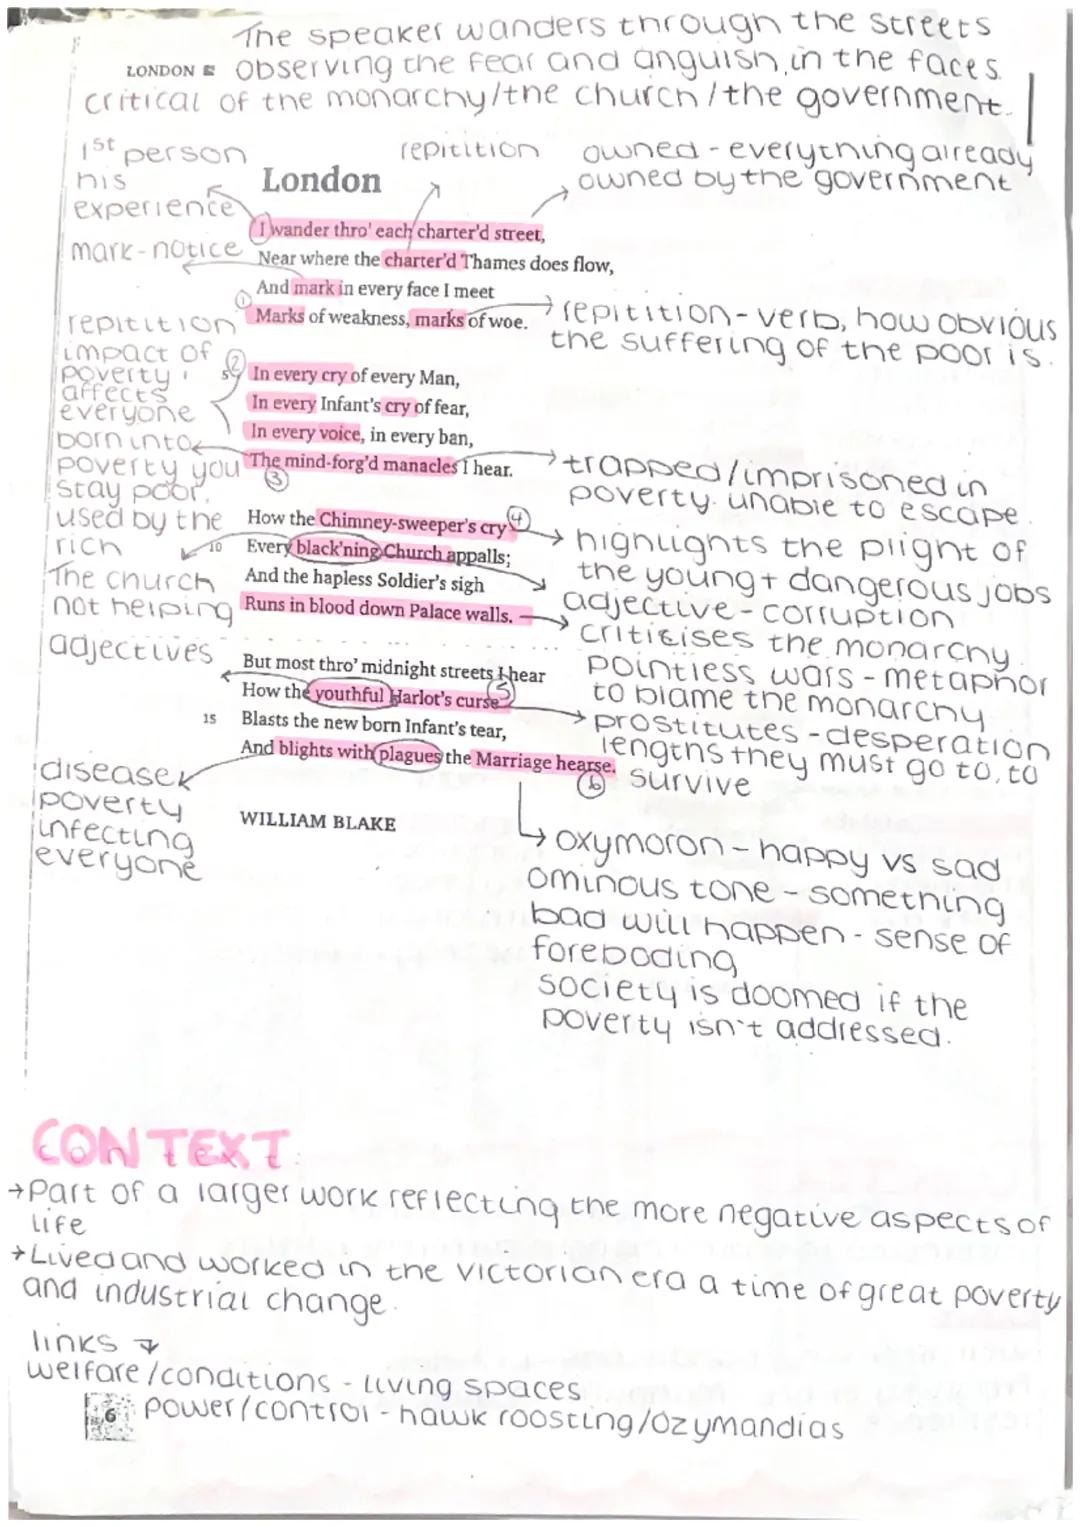 The speaker wanders through the streets
LONDON observing the fear and anguish, in the faces.
critical of the monarchy/the church/the government.
1st person
his
experience
repitition
owned - everything already
owned by the government
London
I wander thro' each charter'd street,
mark - notice
Near where the charter'd Thames does flow,
And mark in every face I meet
1
Marks of weakness, marks of woe.
repitition - verb, how obvious
the suffering of the poor is.
repitition
impact of
poverty
affects
everyone
born into
poverty you
stay poor.
2
5
In every cry of every Man,
In every Infant's cry of fear,
In every voice, in every ban,
The mind-forg'd manacles I hear.
3
trapped/imprisoned in
poverty. unable to escape.
used by the
rich
How the Chimney-sweeper's cry
4
10 Every black'ning Church appalls;
And the hapless Soldier's sigh
Runs in blood down Palace walls.
highlights the plight of
the young + dangerous jobs
adjective - corruption
critisises the monarchy.
pointless wars - metaphor
to blame the monarchy
The church
not helping
adjectives
But most thro' midnight streets I hear
How the youthful Harlot's curse
5
15 Blasts the new born Infant's tear,
And blights with plagues the Marriage hearse.
6
prostitutes - desperation
lengths they must go to, to
survive
disease
poverty
infecting
everyone
WILLIAM BLAKE
oxymoron - happy vs sad
ominous tone - something
bad will happen - sense of
foreboding
society is doomed if the
poverty isn't addressed.
CONTEXT
→Part of a larger work reflecting the more negative aspects of
life
→Lived and worked in the victorian era a time of great poverty
and industrial change.
links
welfare/conditions - living spaces
6 power/control - hawk roosting/Ozymandias